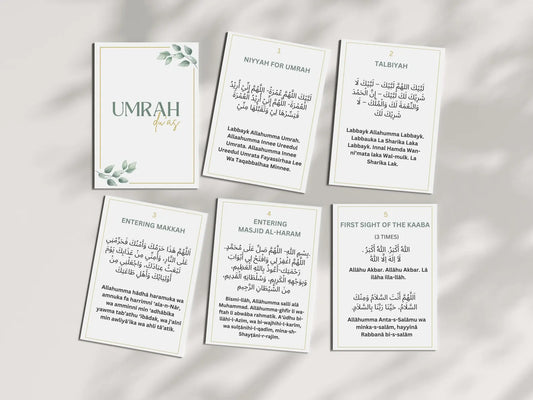 UMRAH
duas
1
NIYYAH FOR UMRAH
لَبَّيْكَ اللَّهُمَّ عُمْرَةً- اللَّهُمَّ إِنِّي أُرِيْدُ
الْعُمْرَةَ- اللَّهُمَّ إِنِّي أُرِيْدُ الْعُمْرَةَ
فَيَسِّرْهَا لِيْ وَتَقَبَّلْهَا مِنِّيْ
Labbayk Allahumma Umrah.
Allaahumma Innee Ureedul
Umrata. Allaahumma Innee
Ureedul Umrata Fayassirhaa Lee
Wa Taqabbalhaa Minnee.
2
TALBIYAH
لَبَّيْكَ اللَّهُمَّ لَبَّيْكَ – لَبَّيْكَ لَا
شَرِيْكَ لَكَ لَبَّيْكَ – إِنَّ الْحَمْدَ
وَالنِّعْمَةَ لَكَ وَالْمُلْكَ – لَا
شَرِيْكَ لَكَ
Labbayk Allahumma Labbayk.
Labbauka La Sharika Laka
Labbayk. Innal Hamda Wan-
ni'mata laka Wal-mulk. La
Sharika Lak.
3
ENTERING MAKKAH
اللَّهُمَّ هَذَا حَرَمُكَ وَأَمْنُكَ فَحَرِّمْنِي
عَلَى النَّارِ، وَأَمِنِّي مِنْ عَذَابِكَ يَوْمَ
تَبْعَثُ عِبَادَكَ، وَاجْعَلْنِي مِنْ
أَوْلِيَائِكَ وَأَهْلِ طَاعَتِكَ
Allahumma hādhā haramuka wa
amnuka fa harrimnī 'ala-n-Nār,
wa amminnī min 'adhābika
yawma tab'athu 'ibādak, wa j'alnī
min awliyā'ika wa ahli tā'atik.
4
ENTERING
MASJID AL-HARAM
بِسْمِ اللَّهِ- اللَّهُمَّ صَلِّ عَلَى مُحَمَّدٍ.
اللَّهُمَّ اغْفِرْ لِي وَافْتَحْ لِي أَبْوَابَ
رَحْمَتِكَ أَعُوذُ بِاللَّهِ الْعَظِيمِ،
وَبِوَجْهِهِ الْكَرِيمِ، وَسُلْطَانِهِ الْقَدِيمِ
مِنَ الشَّيْطَانِ الرَّجِيمِ
Bismi-llāh, Allāhumma salli alā
Muhammad. Allāhumma-ghfir lī wa-
ftah lī abwāba rahmatik. A'ūdhu bi-
llāhi-l-Azīm, wa bi-wajhihi-l-karīm,
wa sulṭānihi-l-qadīm, mina-sh-
Shayṭāni-r-rajīm.
5
FIRST SIGHT OF THE KAABA
(3 TIMES)
اللَّهُ أَكْبَرُ. اللَّهُ أَكْبَرُ.
لَا إِلَهَ إِلَّا اللَّهُ
Allāhu Akbar. Allāhu Akbar. Lā
ilāha illa-llāh.
اللَّهُمَّ أَنْتَ السَّلَامُ وَمِنْكَ
السَّلَامُ، حَيِّنَا رَبَّنَا بِالسَّلَامِ.
Allāhumma Anta-s-Salāmu wa
minka-s-salām, hayyinā
Rabbanā bi-s-salām